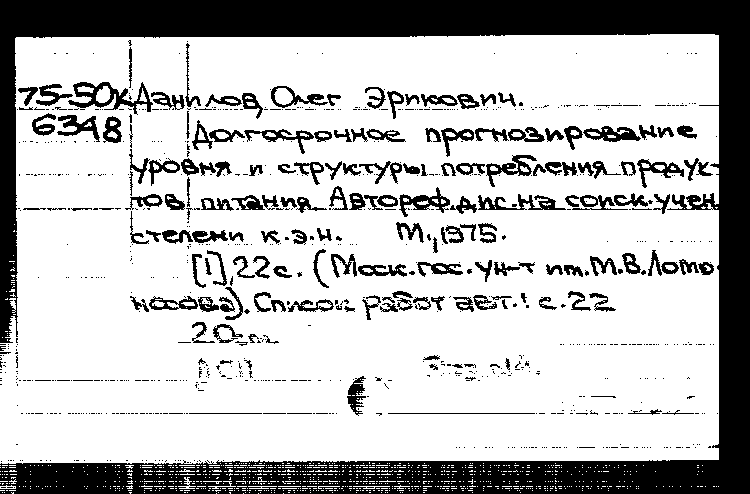 75-50к Данилов, Олег Эрикович.
6348 Долгосрочное прогнозирование
уровня и структуры потребления продук-
тов питания. Автореф. дис. на соиск. учен.
степени к.э.н. М., 1975.
[1], 22 с. (Моск. гос. ун-т им. М.В. Ломо-
носова). Список работ авт.: с. 22
20 см
ДСП